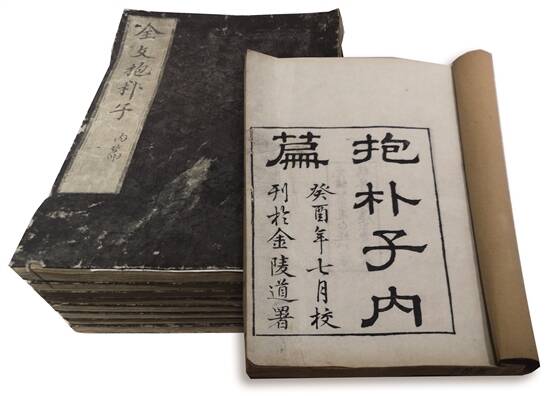 全文抱朴子
内篇
抱朴子内
篇
癸酉年七月校
刊於金陵道署